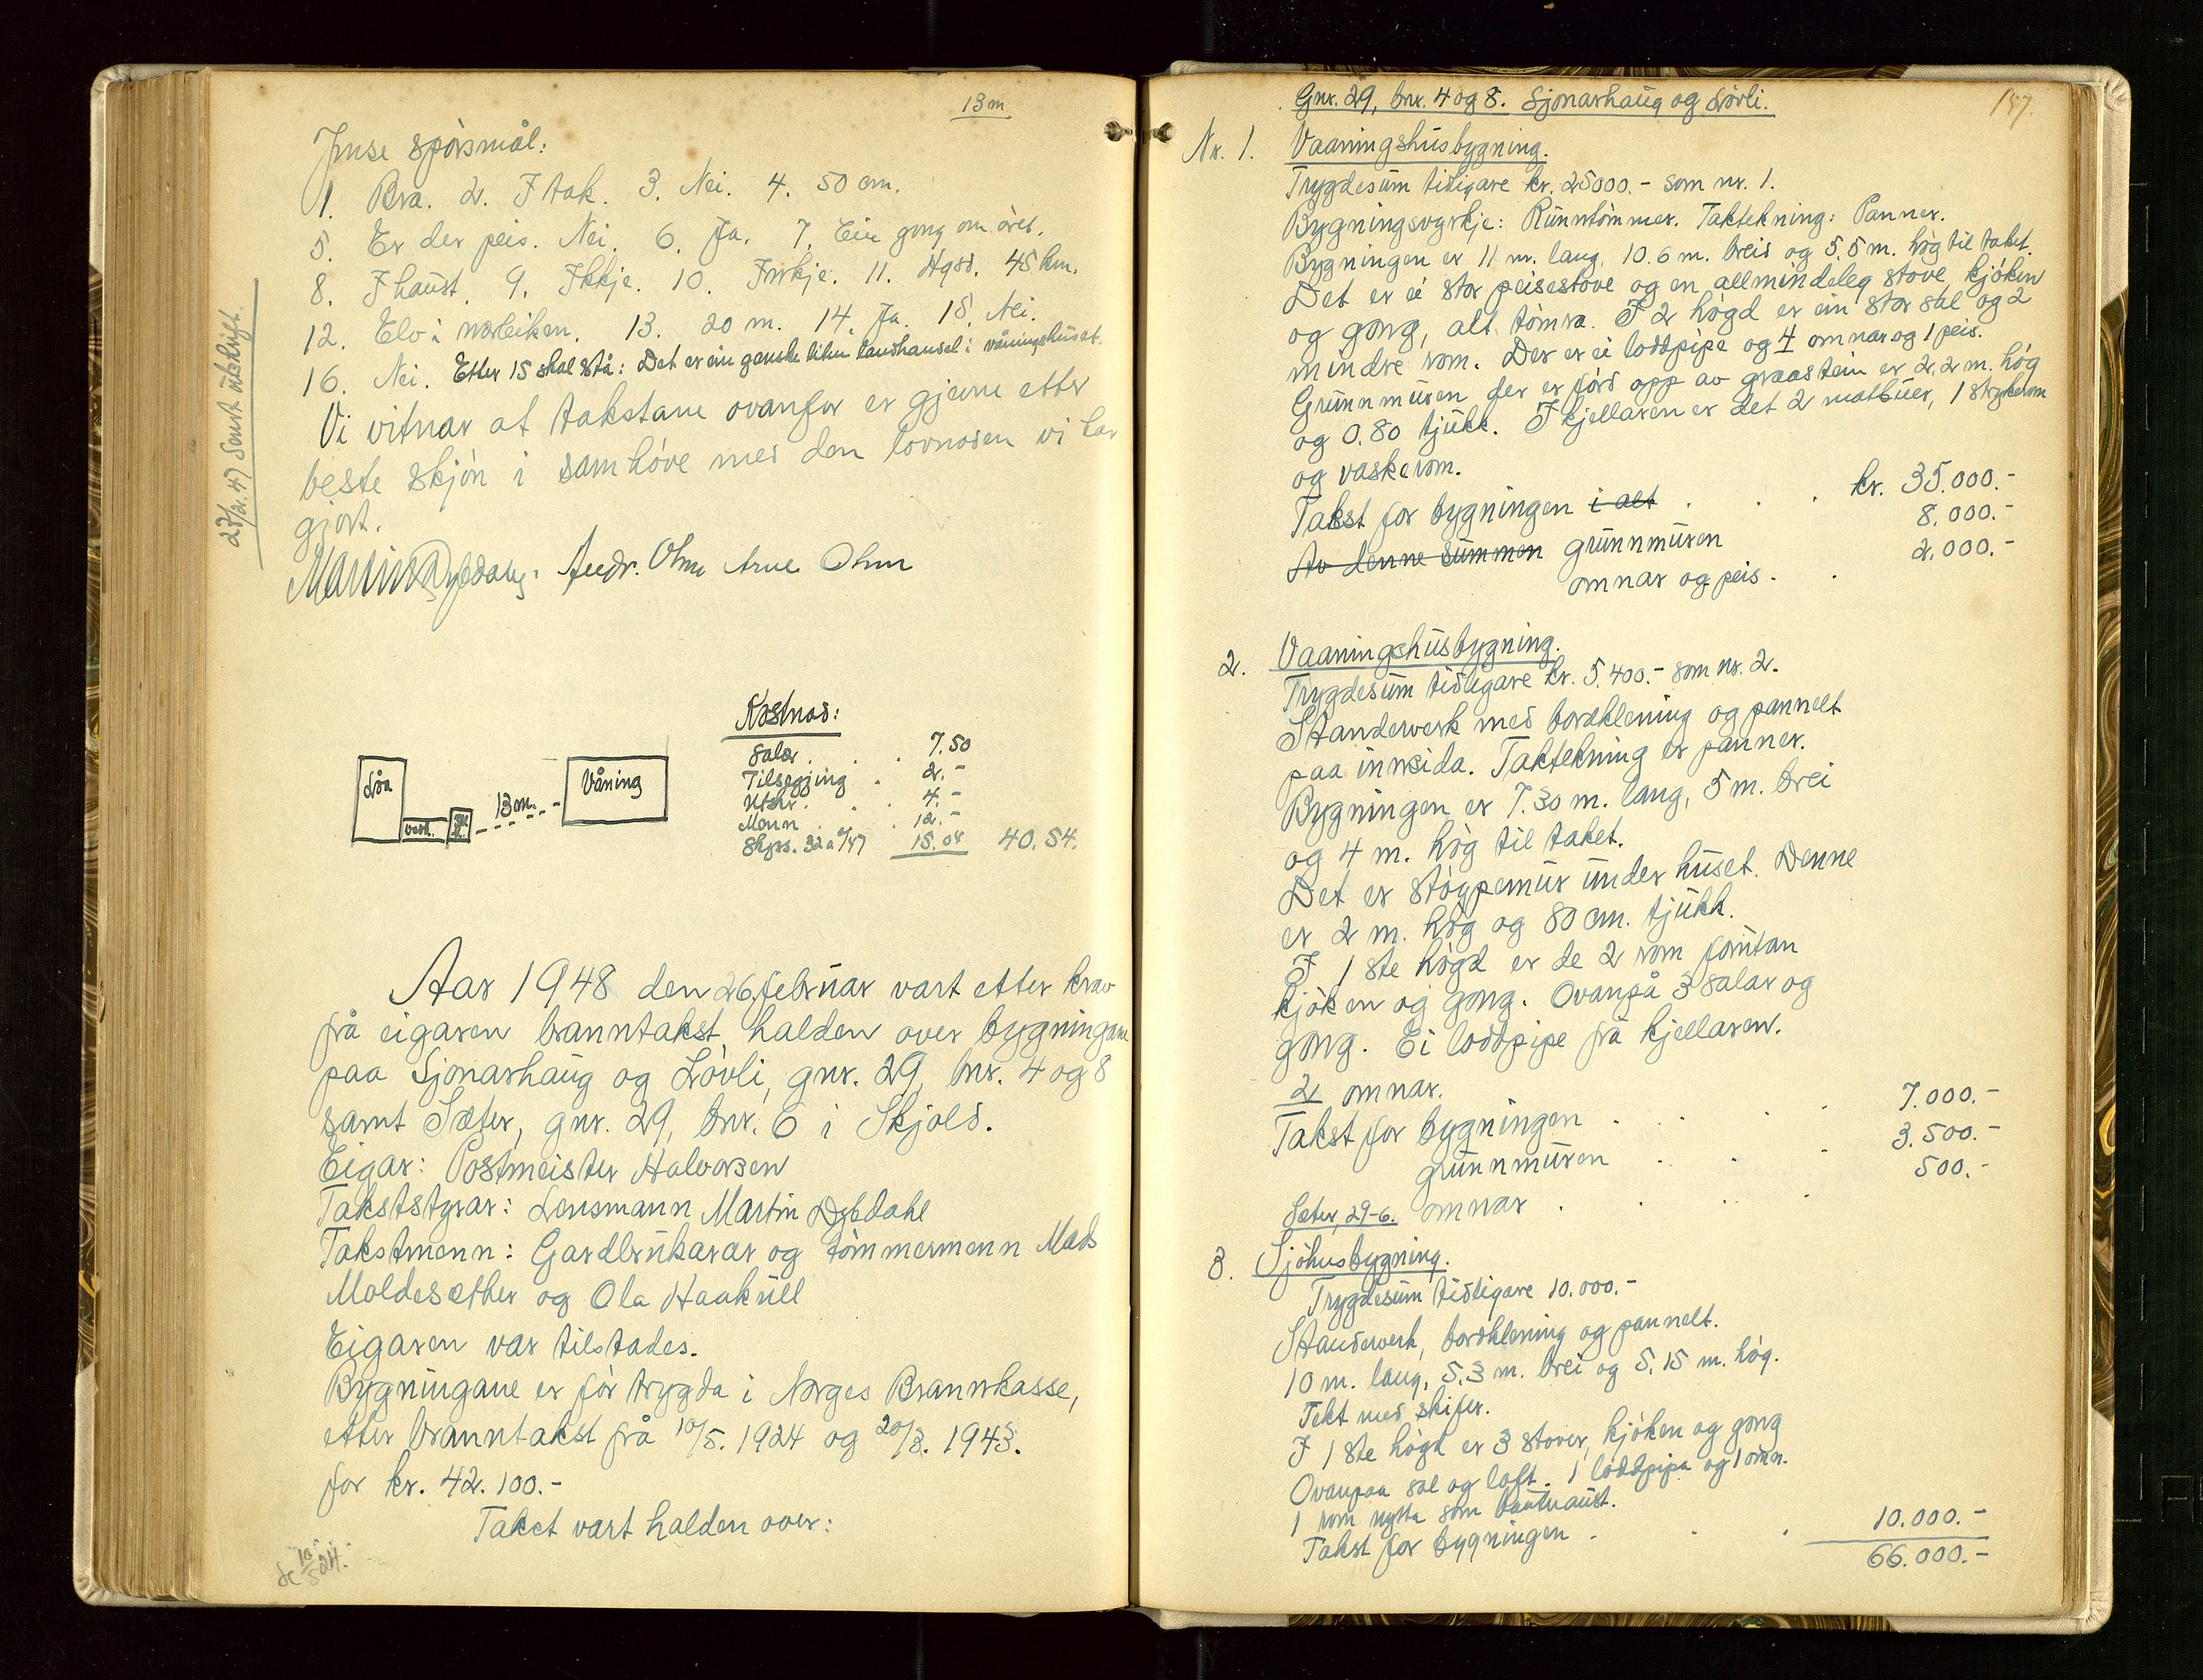 13 m
Ymse spörsmål:
1. Bra. 2. I tak. 3. Nei. 4. 50 cm.
5. Er der peis. Nei. 6. Ja. 7. Ein gong om året.
8. I haust. 9. Ikkje. 10. Inkje. 11. Hgsd. 45 km.
12. Elv i nærleiken. 13. 20 m. 14. Ja. 15. Nei.
16. Nei. Etter 15 skal stå: Det er ein ganske liten landhandel i våningshuset.
Vi vitnar at takstane ovanfor er gjevne etter
beste skjön i samhöve med den lovnaden vi har
gjort.
Martin Dybdahl. Andr. Ohm Arne Ohm
27/2. 47 Sent utskrift.
Kostnad:
Salær . . . 7.50
Tilsegjing . 2.-
Utskr. . . . 4.-
Menn . . . 12.-
Skyss. 32 a 0/47 15.04 40.54.
Löa
vedh.
13 m.
Våning
Aar 1948 den 26. februar vart etter krav
frå eigaren branntakst halden over bygningane
paa Sjonarhaug og Lövli, gnr. 29, bnr. 4 og 8
samt Sæter, gnr. 29, bnr. 6 i Skjold.
Eigar: Postmeister Halvorsen
Takststyrar: Lensmann Martin Dybdahl
Takstmenn: Gardbrukarar og tömmermenn Mads
Moldesæther og Ola Haakull
Eigaren var tilstades.
Bygningane er för trygda i Norges Brannkasse,
etter branntakst frå 10/5. 1924 og 20/3. 1943.
for kr. 42.100.-
Takst vart halden over:
10/5 24.
157.
Gnr. 29, bnr. 4 og 8. Sjonarhaug og Lövli.
Nr. 1. Vaaningshusbygning.
Trygdesum tidligare kr. 25000.- som nr. 1.
Bygningsvyrkje: Runntömmer. Taktekning: Panner.
Bygningen er 11 m. lang, 10.6 m. breid og 5.5 m. hög til taket.
Det er ei stor peisestove og en allmindeleg stove kjöken
og gong, alt tömra. I 2 högd er ein stor sal og 2
mindre rom. Der er ei loddpipe og 4 omnar og 1 peis.
Grunnmuren der er förd opp av graastein er 2,2 m. hög
og 0.80 tjukk. I kjellaren er det 2 matbuer, 1 strykerom
og vaskerom.
Takst for bygningen i alt . . . kr. 35.000.-
Av denne summen grunnmuren 8.000.-
omnar og peis . . 2.000.-
2. Vaaningshusbygning.
Trygdesum tidligare kr. 5.400.- som nr. 2.
Standerverk med bordkledning og pannelt
paa innsida. Taktekning er panner.
Bygningen er 7.30 m. lang, 5 m. brei
og 4 m. hög til taket.
Det er stöypemur under huset. Denne
er 2 m. hög og 80 cm. tjukk.
I 1ste högd er de 2 rom foruten
kjöken og gong. Ovanpå 3 salar og
gong. Ei loddpipe frå kjellaren.
2 omnar.
Takst for bygningen . . . . 7.000.-
grunnmuren . . . 3.500.-
omnar . . . 500.-
Sæter, 29-6.
3. Sjöhusbygning.
Trygdesum tidligare 10.000.-
Standerverk, bordkledning og pannelt.
10 m. lang, 5.3 m. brei og 5.15 m. hög.
Tekt med skifer.
I 1ste högd er 3 stover, kjöken og gong
Ovanpaa sal og loft. 1 loddpipa og 1 omn.
1 rom nytta som baatnaust.
Takst for bygningen . . . 10.000.-
66.000.-